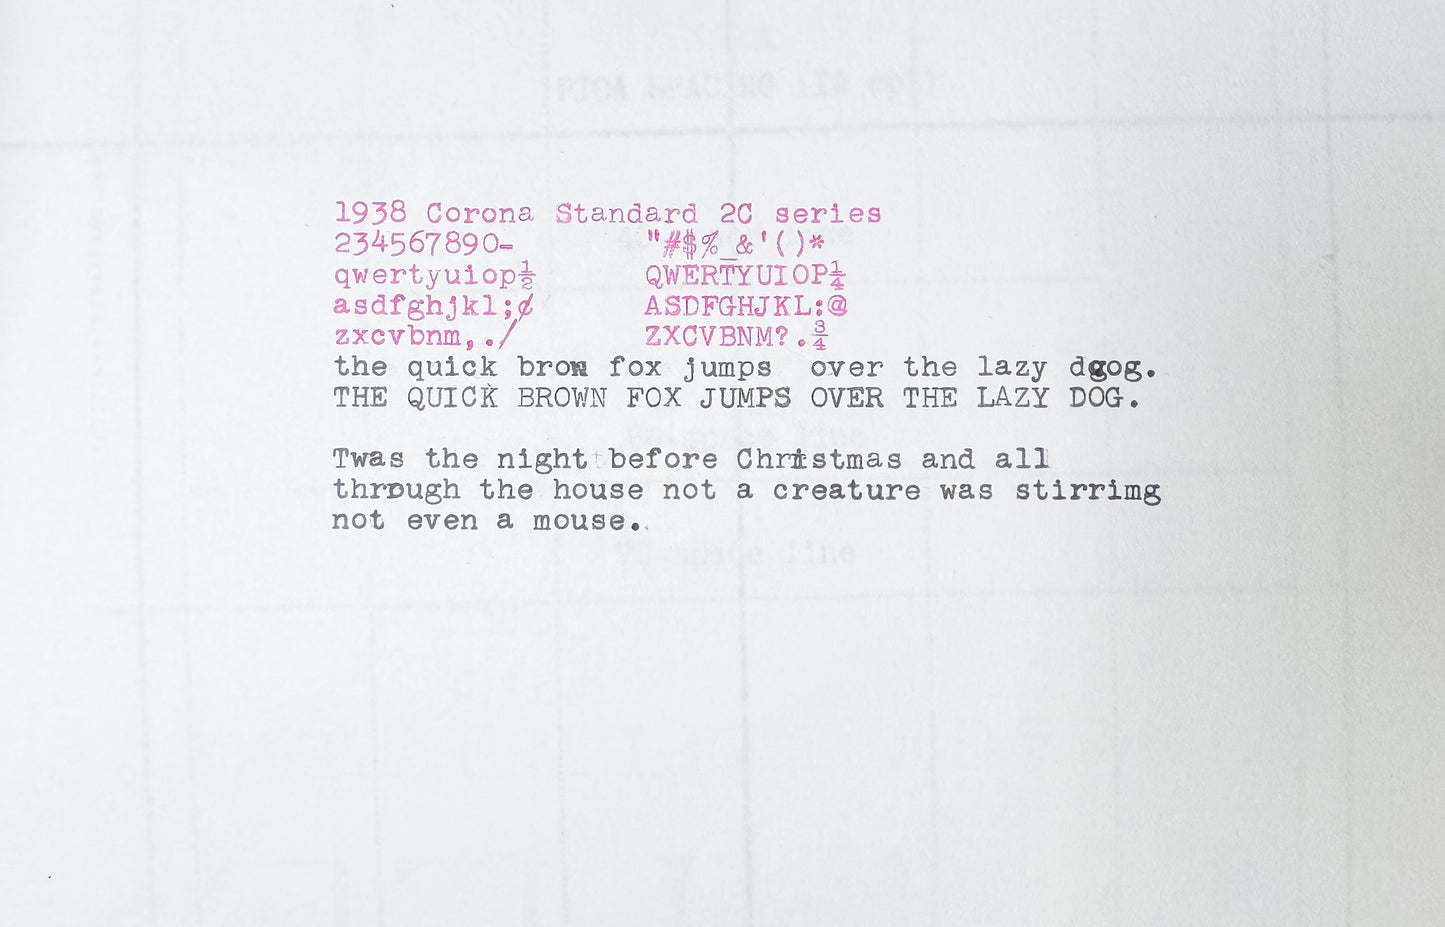 PICA SPACING (10 cpi)
1938 Corona Standard 2C series
234567890- "#$%_&'()*
qwertyuiop½ QWERTYUIOP¼
asdfghjkl;¢ ASDFGHJKL:@
zxcvbnm,./ ZXCVBNM?.¾
the quick brown fox jumps  over the lazy dgog.
THE QUICK BROWN FOX JUMPS OVER THE LAZY DOG.
-space line
Twas the night before Christmas and all
through the house not a creature was stirrimg
not even a mouse..
space line